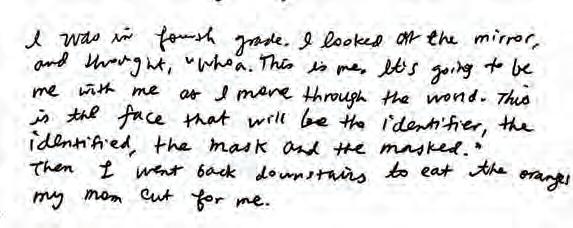 I was in fourth grade. I looked at the mirror,
and thought, "Whoa. This is me. It's going to be
me with me as I move through the world. This
is the face that will be the identifier, the
identified, the mask and the masked."
Then I went back downstairs to eat the oranges
my mom cut for me.